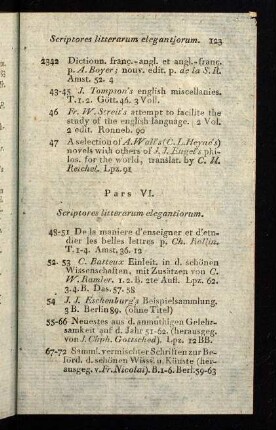 Scriptores litterarum elegantiorum. 123
2342 Dictionn. franç.-angl. et angl.-franç.
p. A. Boyer; nouv. edit. p. de la S. R.
Amst. 52. 4
43-45 J. Tompson's english miscellanies.
T. 1. 2. Gött. 46. 3 Voll.
46 Fr. W. Streit's attempt to facilite the
study of the english language. 2 Vol.
2 edit. Ronneb. 90
47 A selection of A. Wall's (C. L. Heyne's)
novels with others of J. J. Engel's phi-
los. for the world, translat. by C. H.
Reichel. Lpz. 91
Pars VI.
Scriptores litterarum elegantiorum.
48-51 De la maniere d'enseigner et d'etu-
dier les belles lettres p. Ch. Rollin.
T. 1-4. Amst. 36. 12
52. 53 C. Batteux Einleit. in d. schönen
Wissenschaften, mit Zusätzen von C.
W. Ramler. 1. 2. B. 2te Aufl. Lpz. 62.
3. 4. B. Das. 57. 58
54 J. J. Eschenburg's Beispielsammlung.
3 B. Berlin 89. (ohne Titel)
55-66 Neuestes aus d. anmuthigen Gelehr-
samkeit auf d. Jahr 51-62. (herausgeg.
von J. Chph. Gottsched). Lpz. 12 BB.
67-72 Samml. vermischter Schriften zur Be-
förd. d. schönen Wiss. u. Künste (her-
ausgeg. v. Fr. Nicolai). B. 1-6. Berl. 59-63